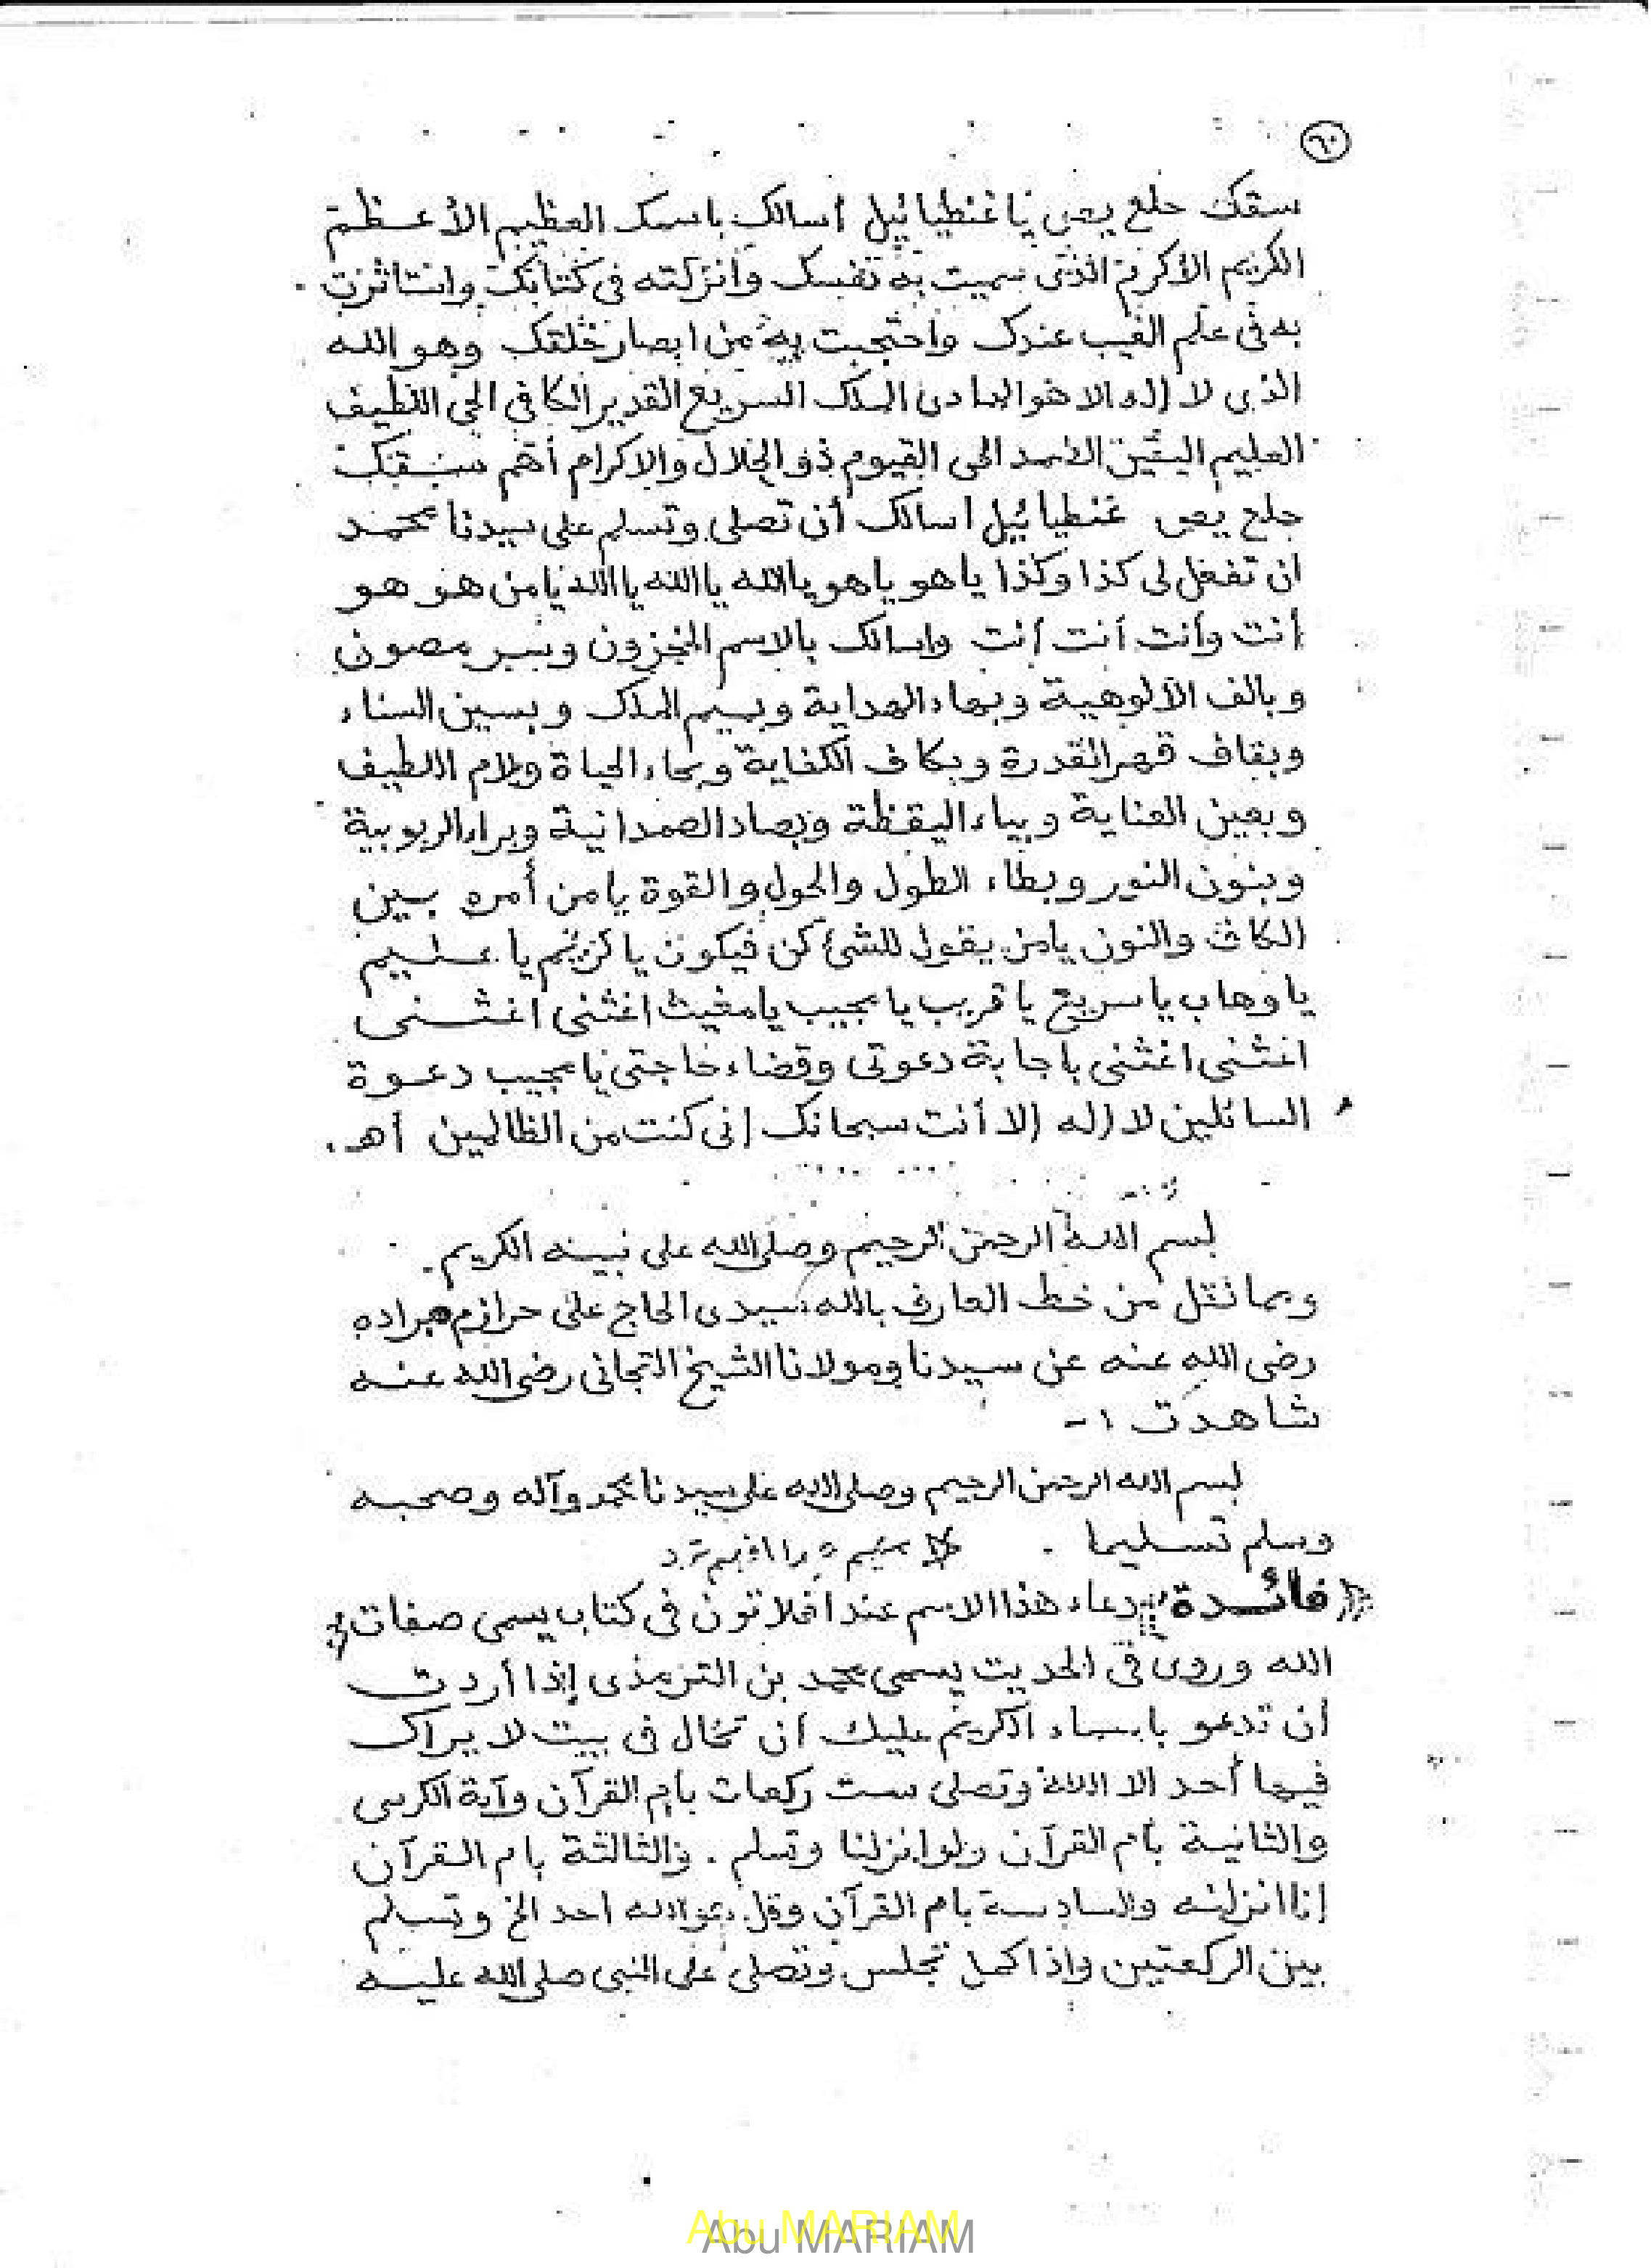 ٦٠
سقك حلع يص يا غنطيائيل أسالك باسمك العظيم الأعظم
الكريم الأكرم الذى سميت به نفسك وأنزلته فى كتابك واستاثرت
به فى علم الغيب عندك واحتجبت به من ابصار خلقك وهو الله
الذى لا إله الا هو الهادى الملك السريع القدير الكافى الحى اللطيف
العليم اليقين الصمد الحى القيوم ذو الجلال والاكرام أهم سقك
حلع يص غنطيائيل اسالك أن تصلى وتسلم على سيدنا محمد
ان تفعل لى كذا وكذا ياهو ياهو يا الله يا الله يا الله يا من هو هو
أنت وأنت أنت أنت واسالك بالاسم المخزون وبسر مصون
وبالف الألوهية وبهاء الهداية وبميم الملك وبسين السناء
وبقاف قهر القدرة وبكاف الكفاية وبحاء الحياة وبلام اللطيف
وبعين العناية وبياء اليقظة وبصاد الصمدانية وبراء الربوبية
وبنون النور وبطاء الطول والحول والقوة يا من أمره بين
الكاف والنون يا من يقول للشئ كن فيكون يا كريم يا عليم
يا وهاب يا سريع يا قريب يا مجيب يا مغيث اغثنى اغثنى
اغثنى اغثنى باجابة دعوتى وقضاء حاجتى يا مجيب دعوة
السائلين لا إله إلا أنت سبحانك إنى كنت من الظالمين أهـ.
بسم الله الرحمن الرحيم وصلى الله على نبيه الكريم.
ومما نقل من خط العارف بالله سيدى الحاج على حرازم براده
رضى الله عنه عن سيدنا ومولانا الشيخ التجانى رضى الله عنه
شاهدت ١-
بسم الله الرحمن الرحيم وصلى الله على سيدنا محمد وآله وصحبه
وسلم تسليما .
فائدة: دعاء هذا الاسم عند افلاتون فى كتاب يسمى صفات
الله وروى فى الحديت يسمى محمد بن الترمذى إذا أردت
أن تدعو باسماء الكريم عليك أن تخال فى بيت لا يراك
فيها أحد الا الله وتصلى ست ركعات بام القرآن وآية الكرسى
والثانية بأم القرآن ولو انزلنا وتسلم . والثالثة بام القرآن
إنا انزلنه والسادسة بام القرآن وقل هو الله احد الخ وتسلم
بين الركعتين واذا كمل تجلس وتصلى على النبى صلى الله عليه
Abu MARIAM